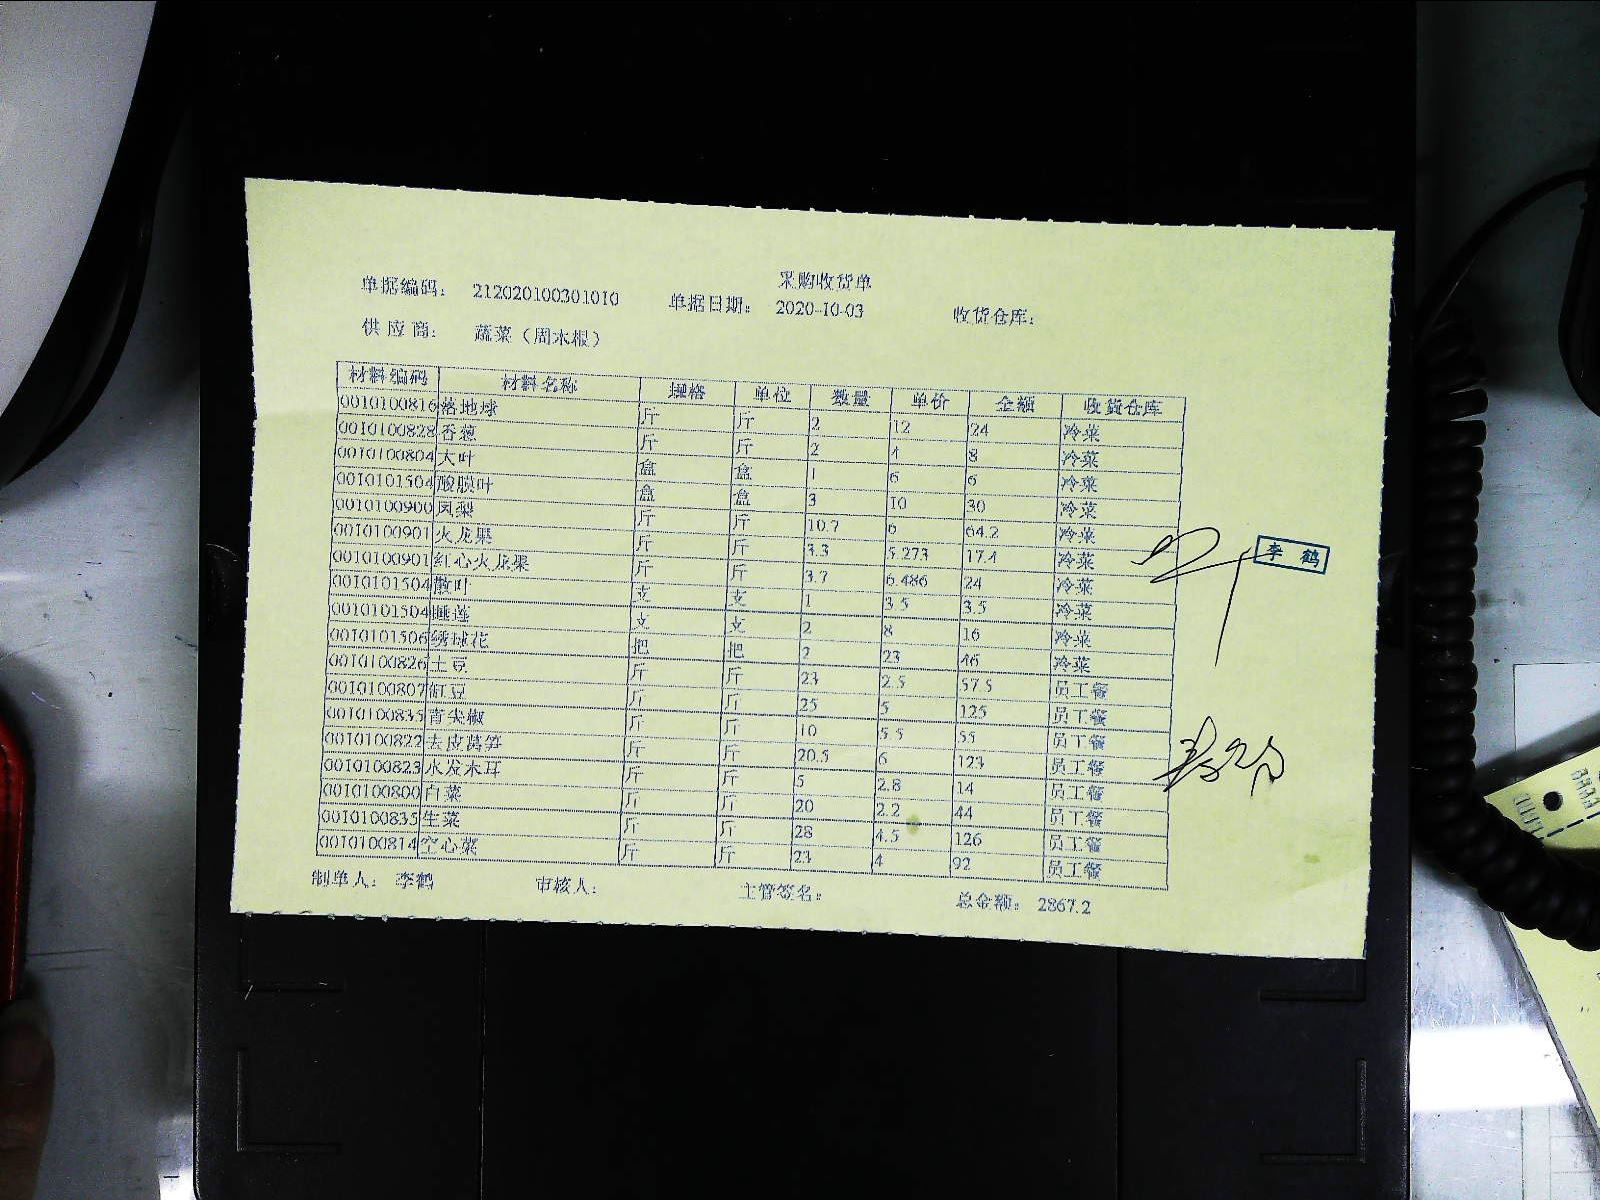 采购收货单
单据编码： 212020100301010 单据日期： 2020-10-03 收货仓库：
供应商： 蔬菜（周木根）
材料编码 材料名称 规格 单位 数量 单价 金额 收货仓库
0010100816 落地球 斤 斤 2 12 24 冷菜
0010100828 香葱 斤 斤 2 4 8 冷菜
0010100804 大叶 盒 盒 1 6 6 冷菜
0010101504 酸膜叶 盒 盒 3 10 30 冷菜
0010100900 凤梨 斤 斤 10.7 6 64.2 冷菜
0010100901 火龙果 斤 斤 3.3 5.273 17.4 冷菜
0010100901 红心火龙果 斤 斤 3.7 6.486 24 冷菜
0010101504 散叶 支 支 1 3.5 3.5 冷菜
0010101504 睡莲 支 支 2 8 16 冷菜
0010101506 绣球花 把 把 2 23 46 冷菜
0010100826 土豆 斤 斤 23 2.5 57.5 员工餐
0010100807 缸豆 斤 斤 25 5 125 员工餐
0010100835 青尖椒 斤 斤 10 5.5 55 员工餐
0010100822 去皮莴笋 斤 斤 20.5 6 123 员工餐
0010100823 水发木耳 斤 斤 5 2.8 14 员工餐
0010100800 白菜 斤 斤 20 2.2 44 员工餐
0010100835 生菜 斤 斤 28 4.5 126 员工餐
0010100814 空心菜 斤 斤 23 4 92 员工餐
制单人： 李鹤 审核人： 主管签名： 总金额： 2867.2
李鹤